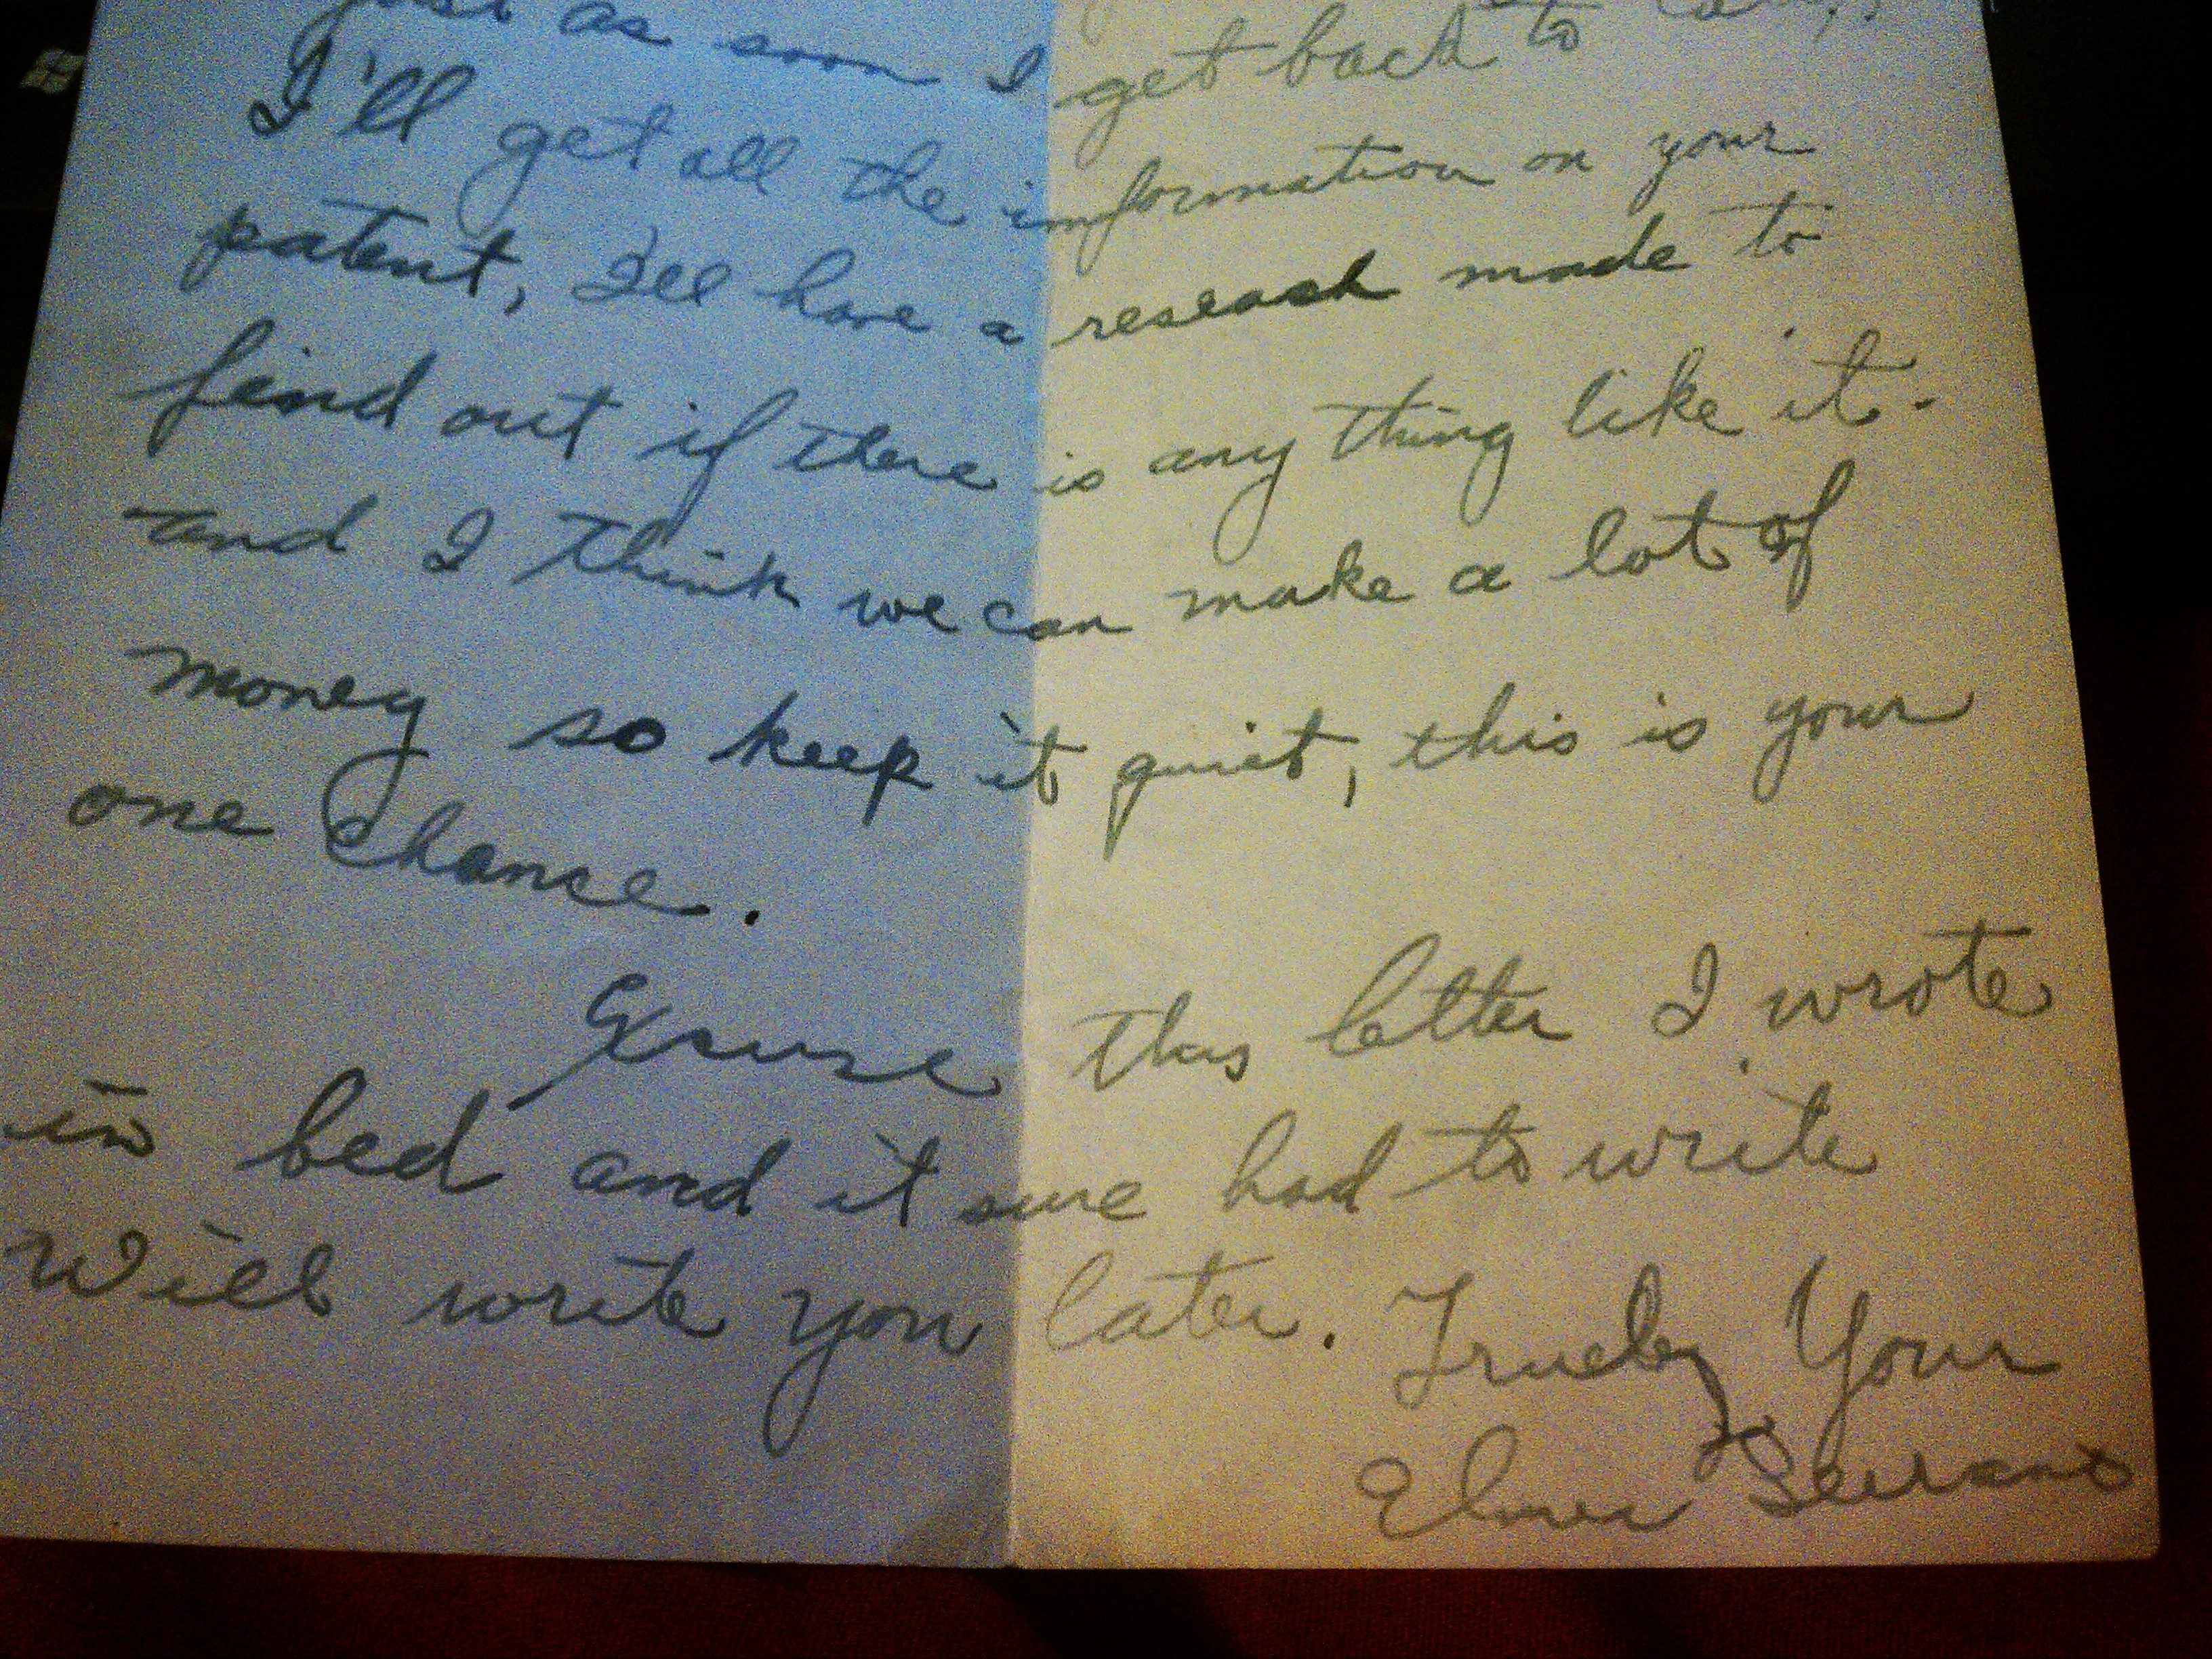 just as soon I get back to
I'll get all the information on your
patent, I'll have a reseach made to
find out if there is any thing like it.
and I think we can make a lot of
money so keep it quiet, this is your
one chanse.
Exsuse this letter I wrote
in bed and it sure had to write
Will write you later. Truely Your
Elmer